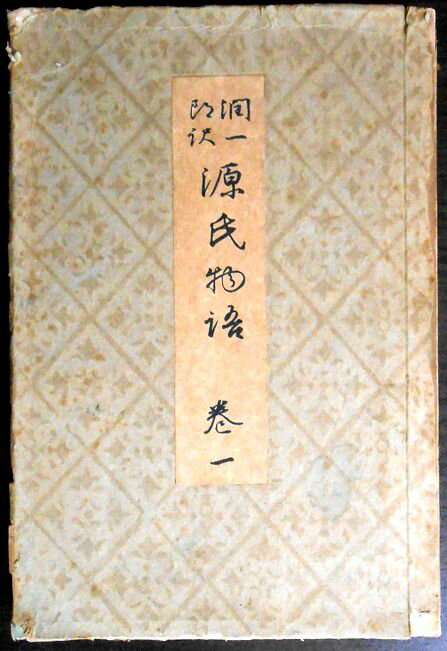 潤一
郎訳
源氏物語 巻一